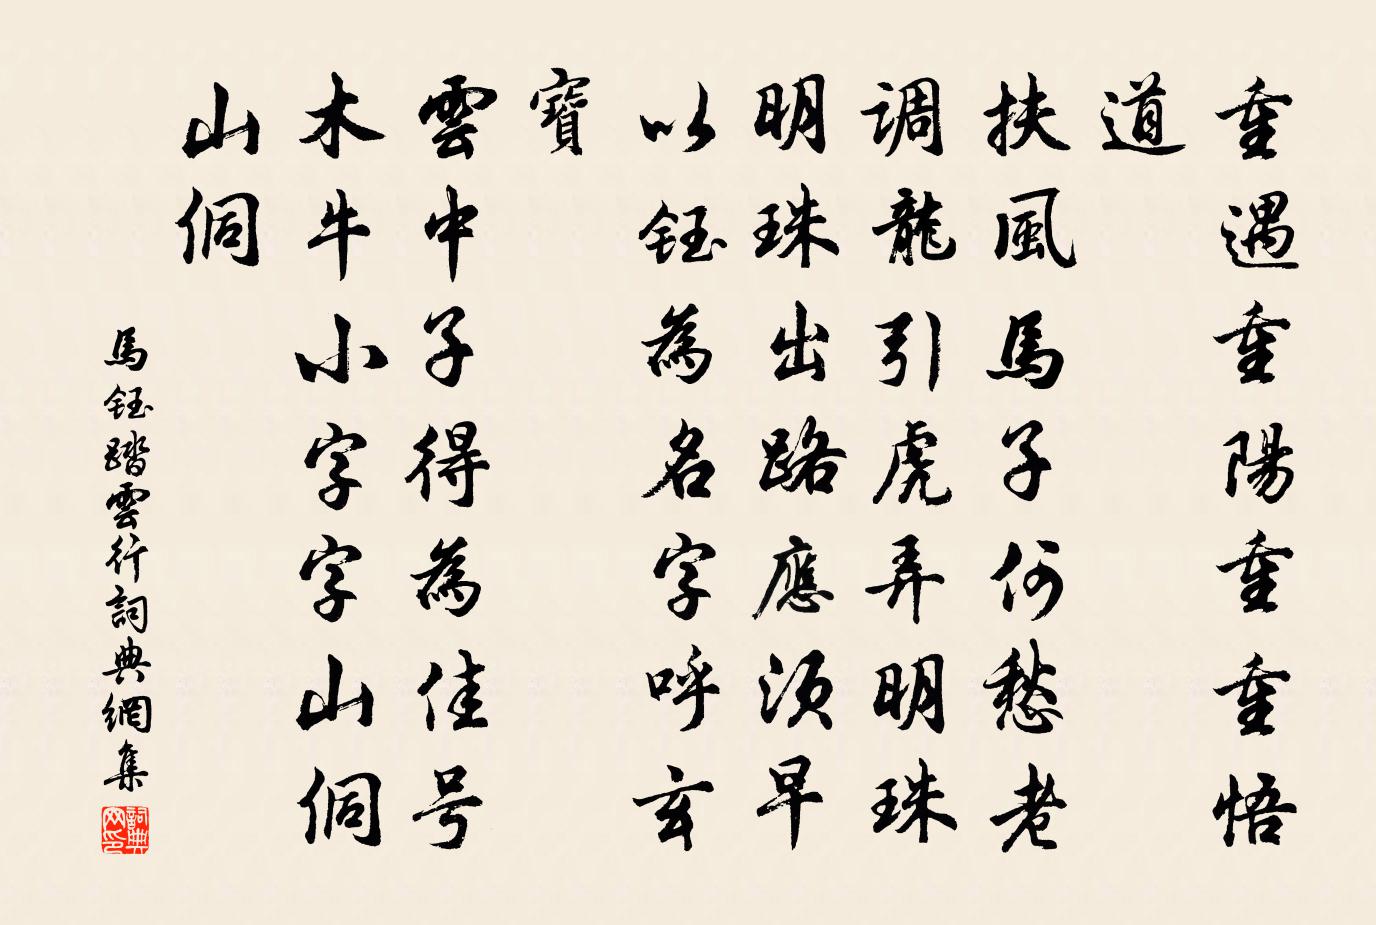 重遇重陽重重悟
道
扶風馬子何愁老
调龍引虎弄明珠
明珠出路應须早
以鈺為名字呼玄
寶
雲中子得為佳号
木牛小字字山侗
山侗
馬鈺踏雲行詞典網集
詞典網印